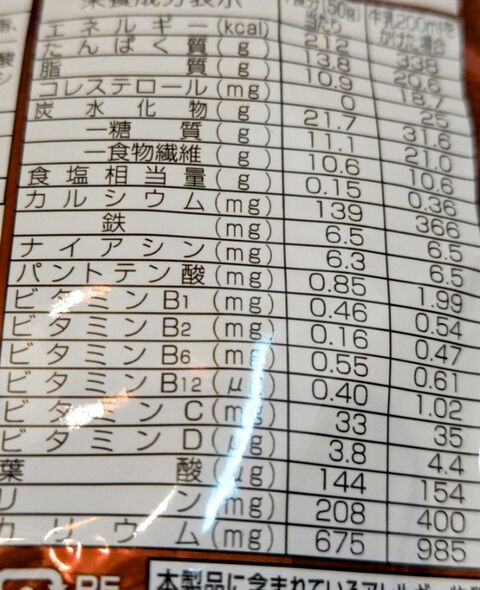 栄養成分表示 1食分(50g)当たり 牛乳200mlをかけた場合
エネルギー (kcal) 212 338
たんぱく質 (g) 13.8 20.6
脂質 (g) 10.9 18.7
コレステロール (mg) 0 25
炭水化物 (g) 21.7 31.6
ー糖質 (g) 11.1 21.0
ー食物繊維 (g) 10.6 10.6
食塩相当量 (g) 0.15 0.36
カルシウム (mg) 139 366
鉄 (mg) 6.5 6.5
ナイアシン (mg) 6.3 6.5
パントテン酸 (mg) 0.85 1.99
ビタミンB1 (mg) 0.46 0.54
ビタミンB2 (mg) 0.16 0.47
ビタミンB6 (mg) 0.55 0.61
ビタミンB12 (μg) 0.40 1.02
ビタミンC (mg) 33 35
ビタミンD (μg) 3.8 4.4
葉酸 (μg) 144 154
リン (mg) 208 400
カリウム (mg) 675 985
PE
本製品に含まれているアレルギー物